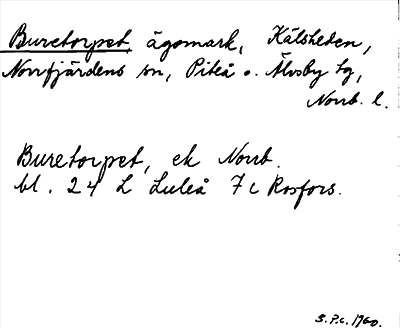 Buretorpet, ägomark, Kälsheden,
Norrfjärdens sn, Piteå o. Älvsby tg,
Norrb. l.
Buretorpet, ek Norrb.
bl. 24 L Luleå 7 c Rosfors.
S.P.C. 1960.